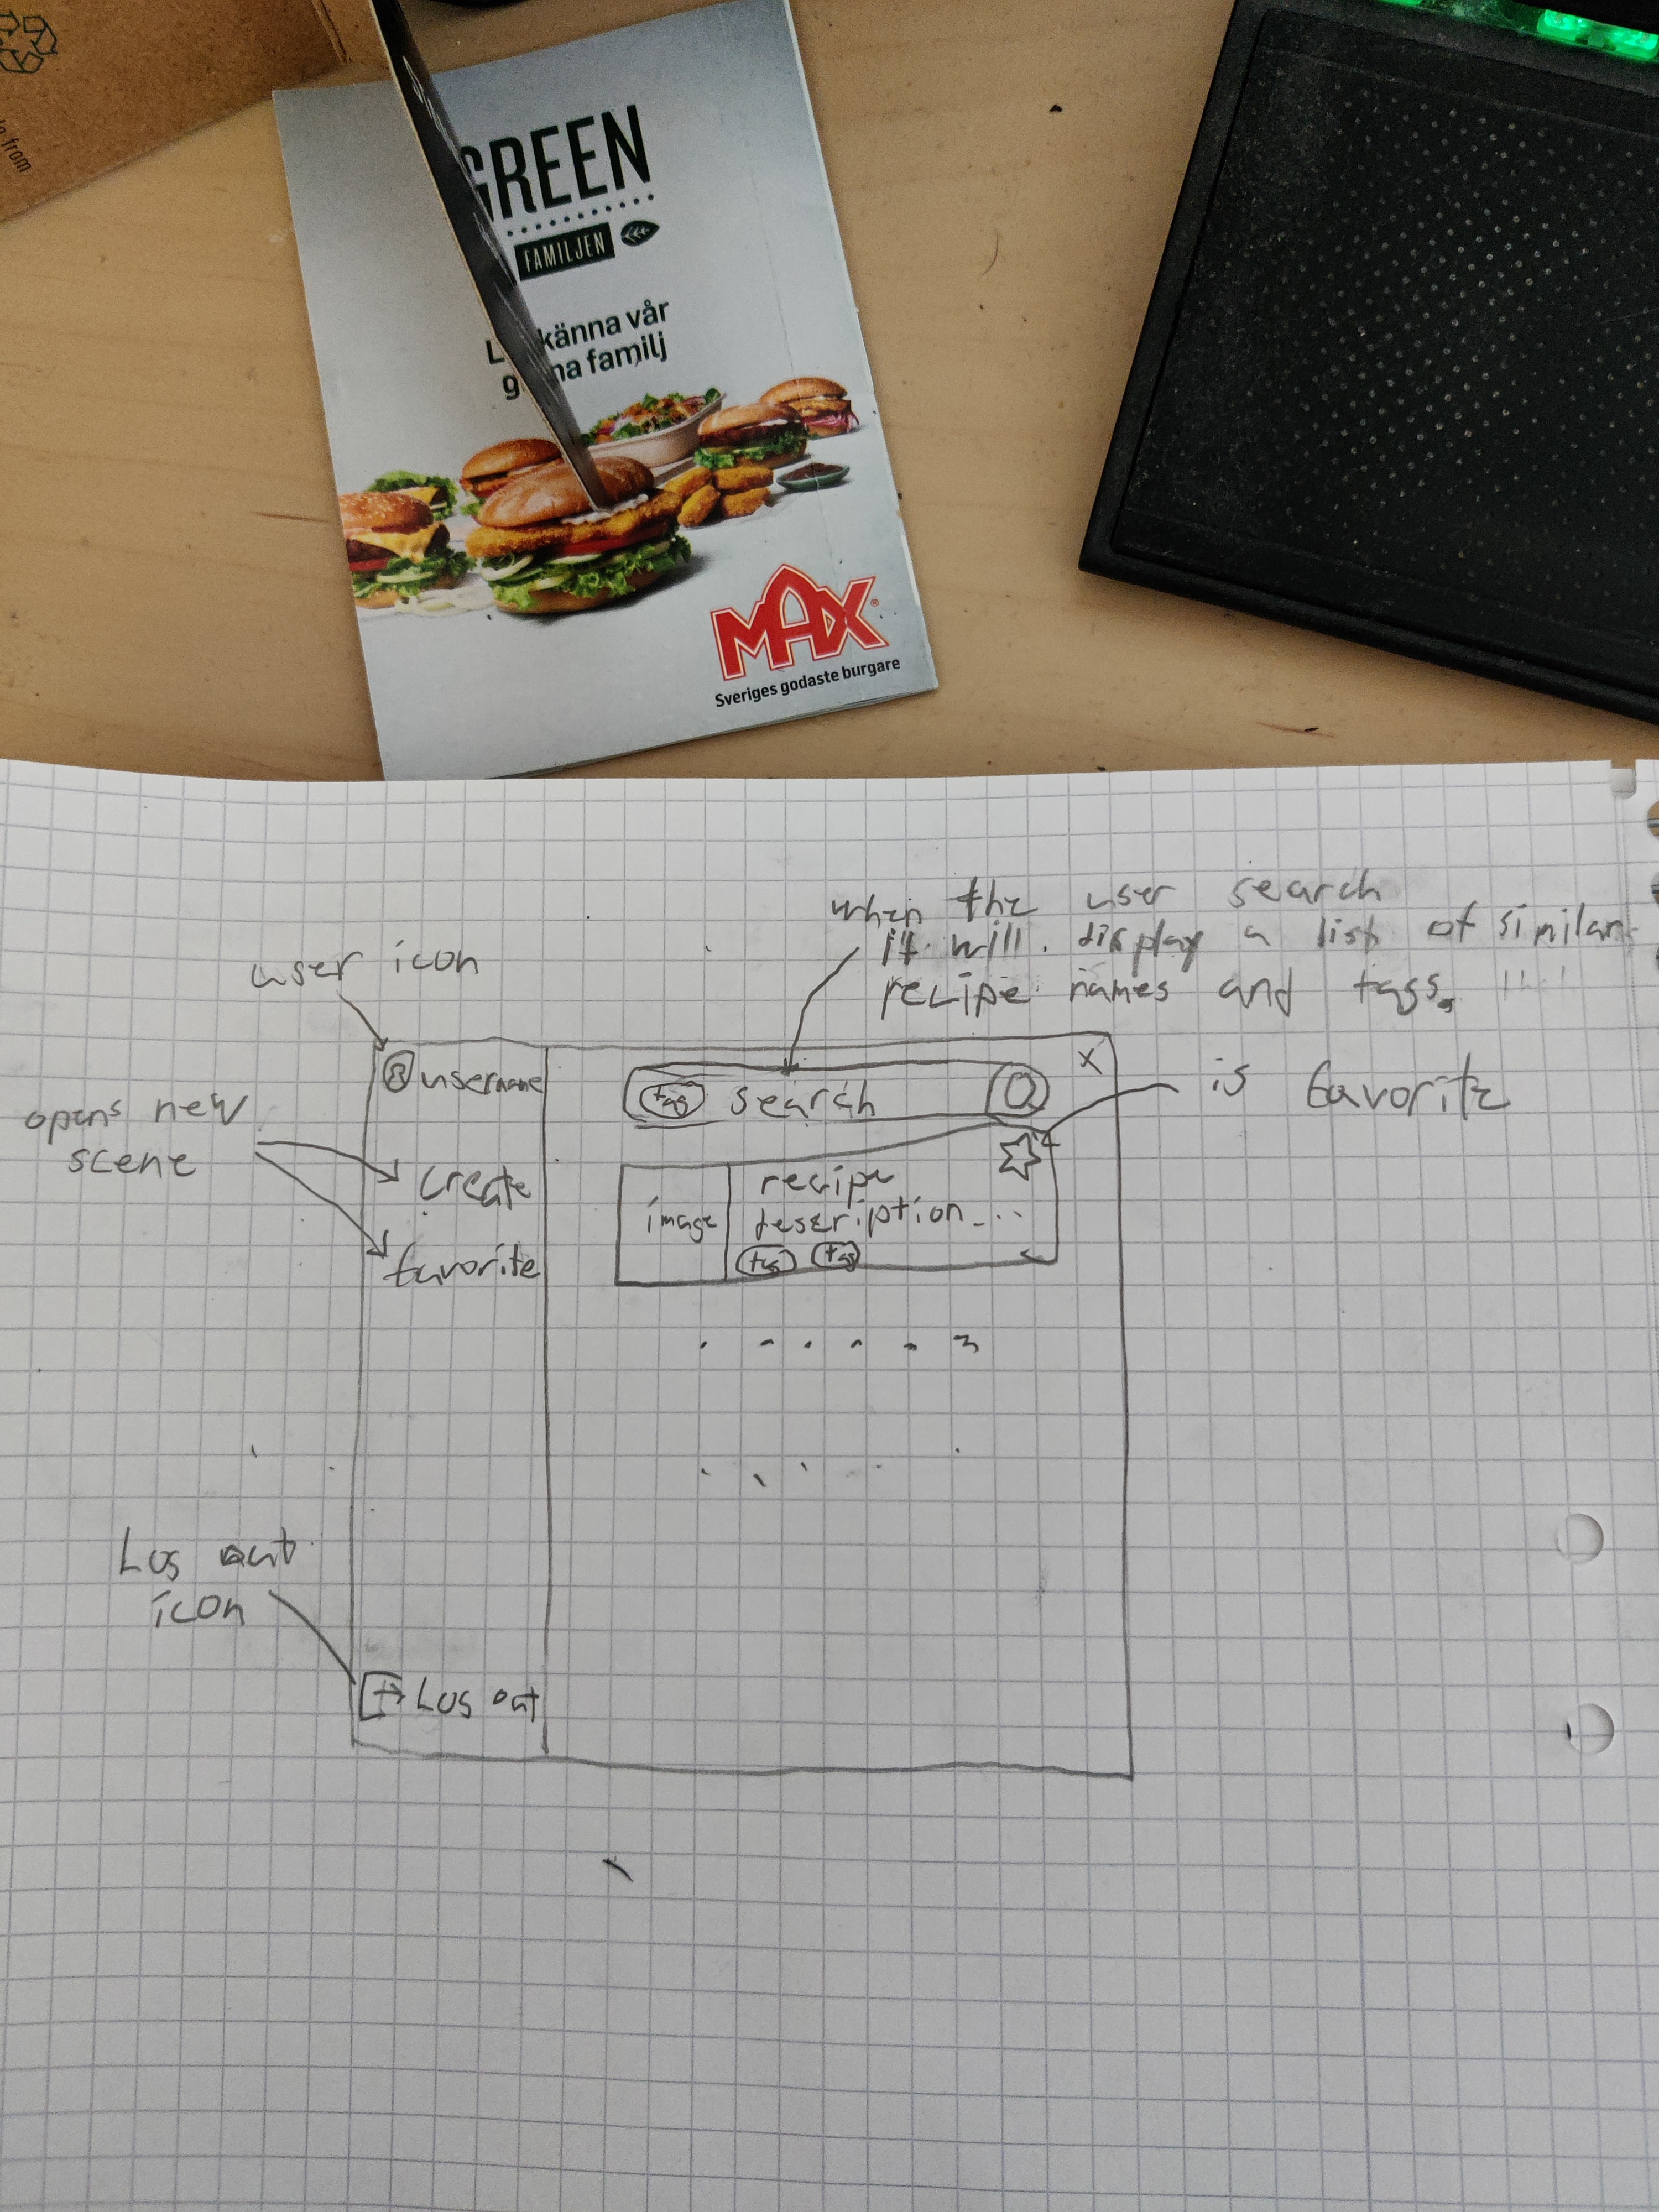 from
GREEN
FAMILJEN
känna vår
na familj
MAX
Sveriges godaste burgare
when the user search
it will. display a list of similar
recipe names and tags.
user icon
username
tag search
X
is favorite
opens new
scene
create
favorite
image
recipe
description...
tag tag
Log out
icon
Log out